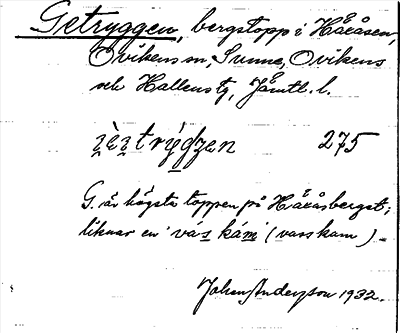 Getryggen, bergstopp i Hååsen,
Ovikens sn, Sunne, Ovikens
och Hallens tg, Jämtl. l.
275
G. är högsta toppen på Hååsberget;
liknar en 'vás kám' (vass kam).
Johan Anderson 1932.